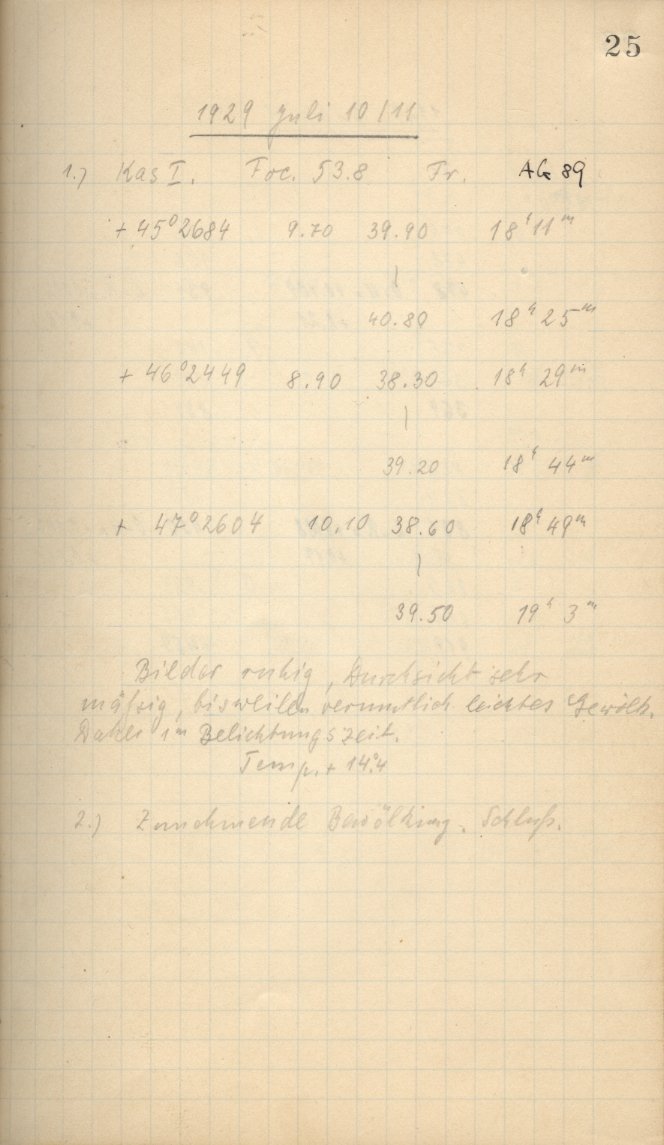 25
1929 Juli 10/11
1.) Kas I. Foc. 53.8 Fr. AG 89
+ 45° 2684 9.70 39.90 18ʰ 11ᵐ
|
40.80 18ʰ 25ᵐ
+ 46° 2449 8.90 38.30 18ʰ 29ᵐ
|
39.20 18ʰ 44ᵐ
+ 47° 2604 10.10 38.60 18ʰ 49ᵐ
|
39.50 19ʰ 3ᵐ
Bilder ruhig, Durchsicht sehr
mäßig, bisweilen vermutlich leichtes Gewölk.
Daher 1ᵐ Belichtungszeit.
Temp. + 14°.4
2.) Zunehmende Bewölkung. Schluß.